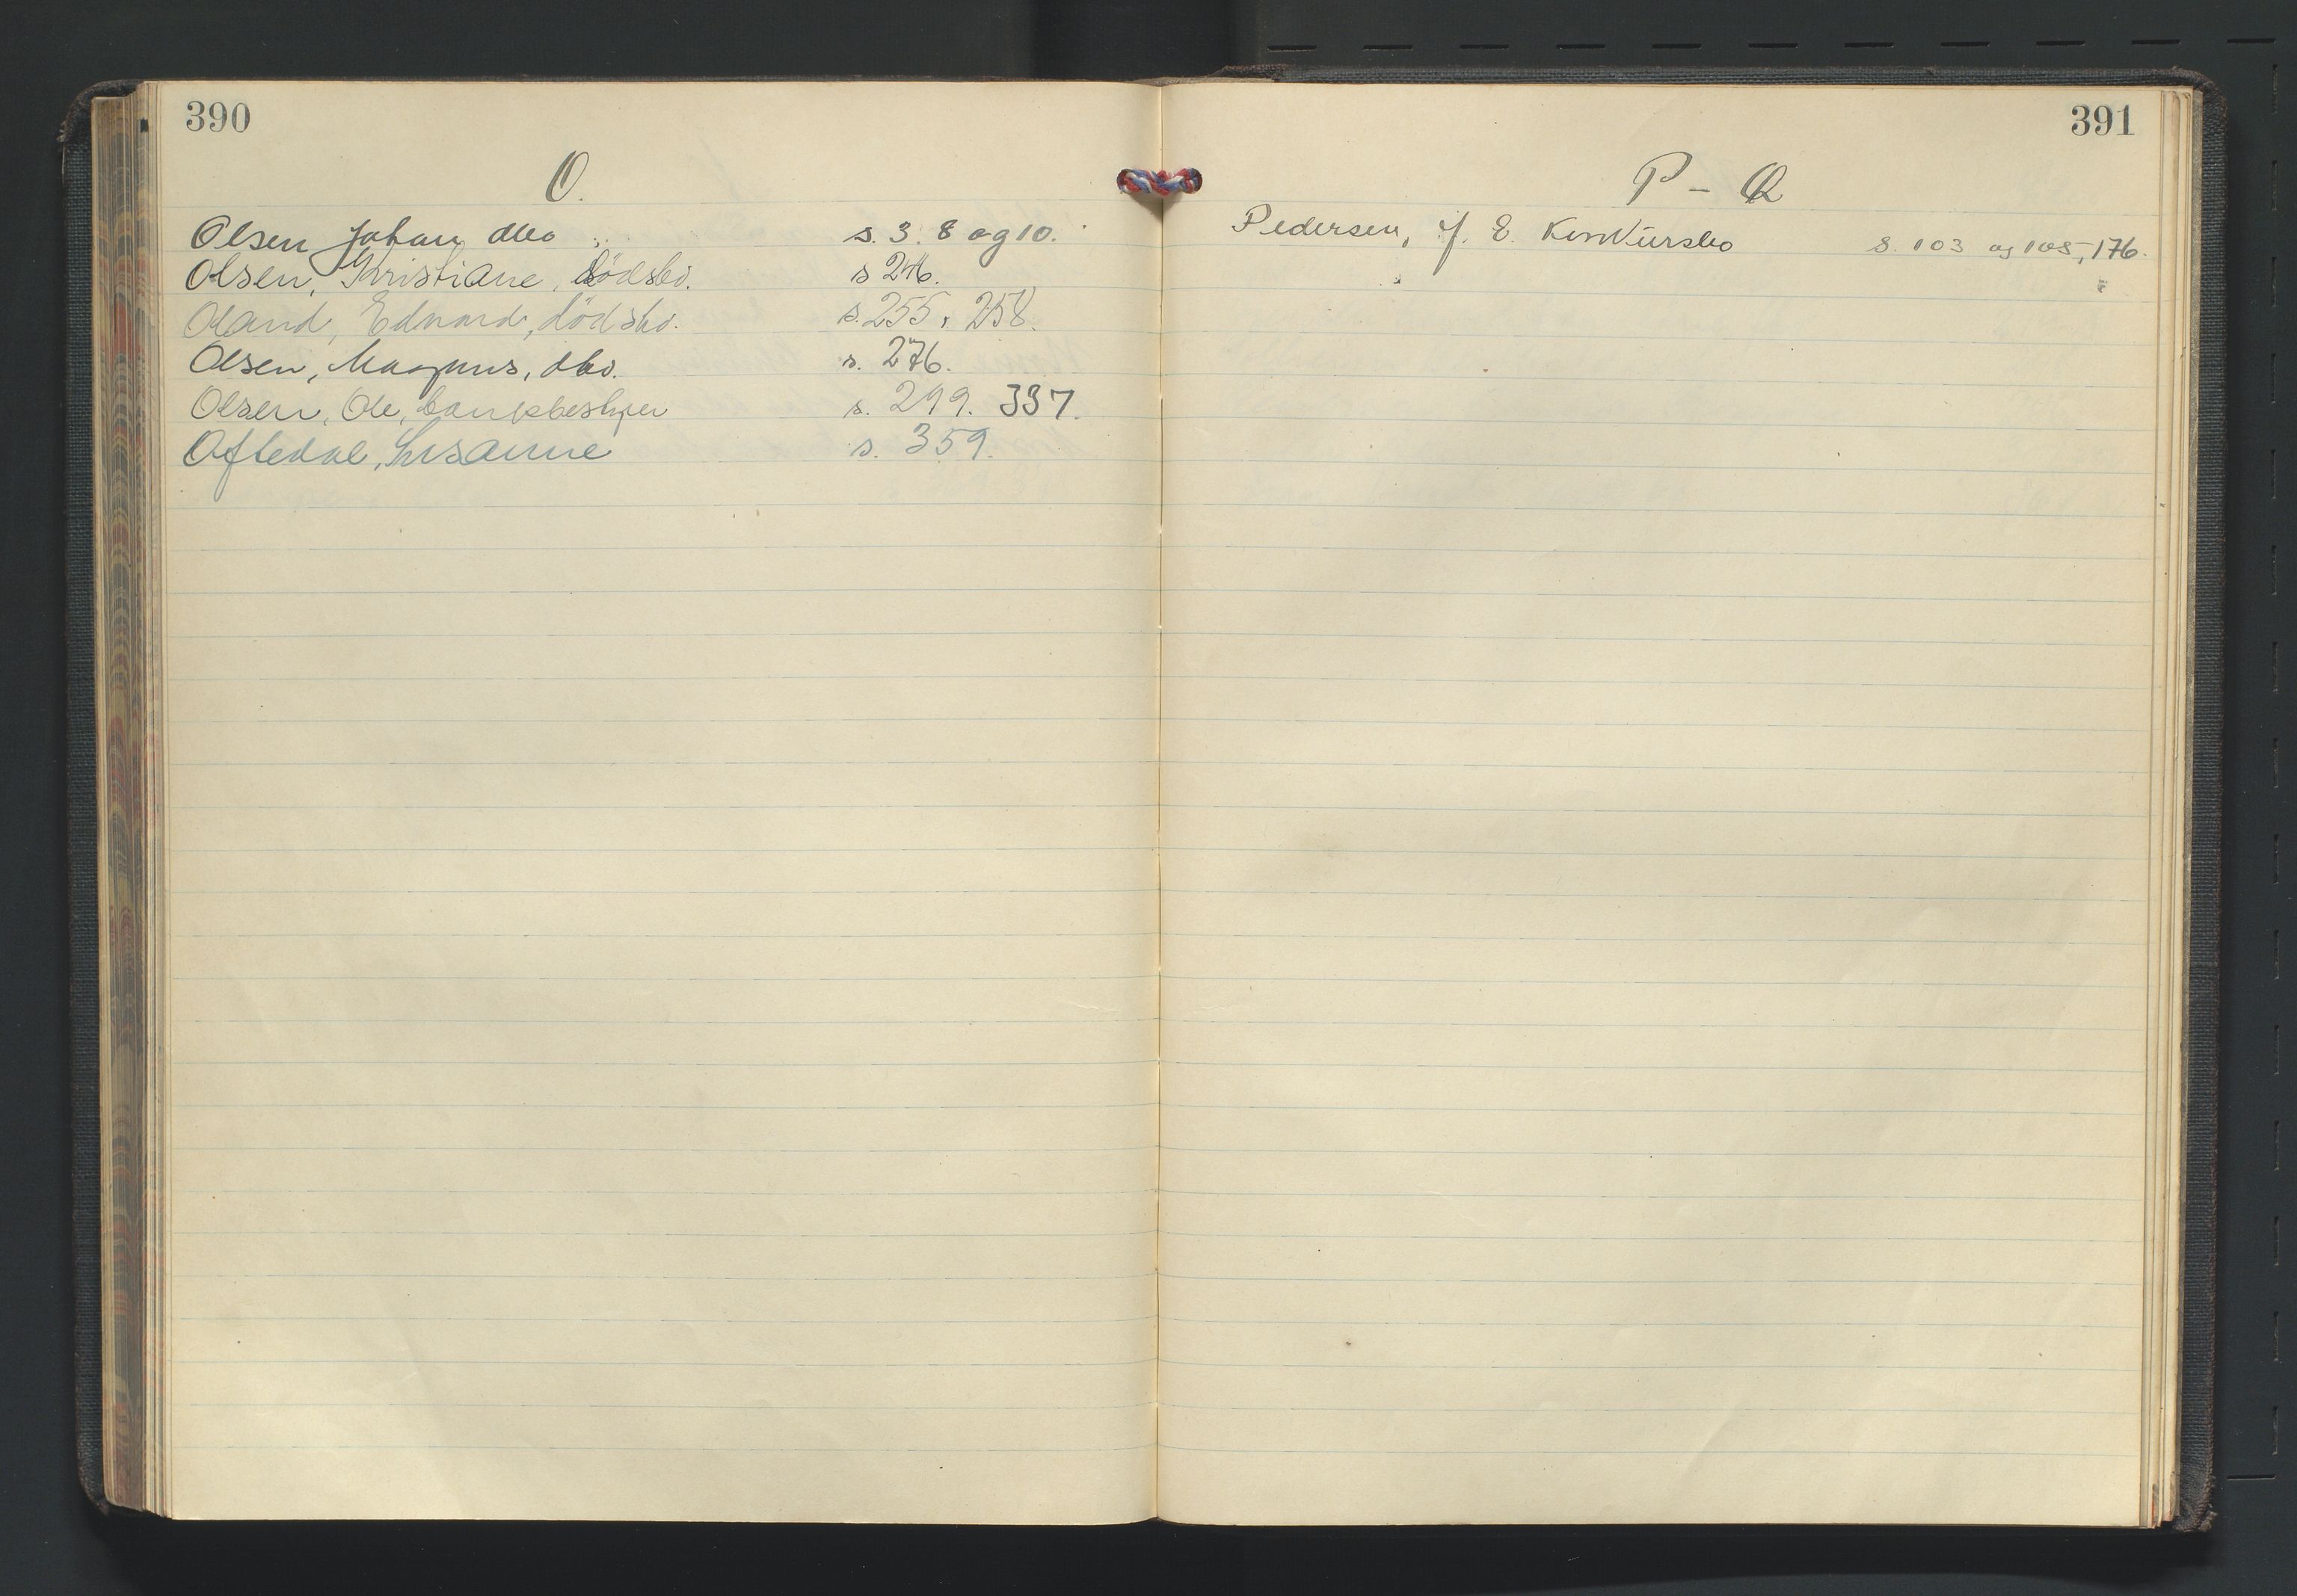 390
O.
Olsen Johan dbo s. 3. 8 og 10.
Olsen, Kristiane, dödsbo. s 246.
Oland, Edvard, dödsbo. s. 255, 258.
Olsen, Magnus, dbo. s. 276.
Olsen, Ole, s. 299. 337.
Oftedal, Susanne s. 359.
391
P - Q
Pedersen, J. E. Konkürsbo s. 103 og 105, 176.